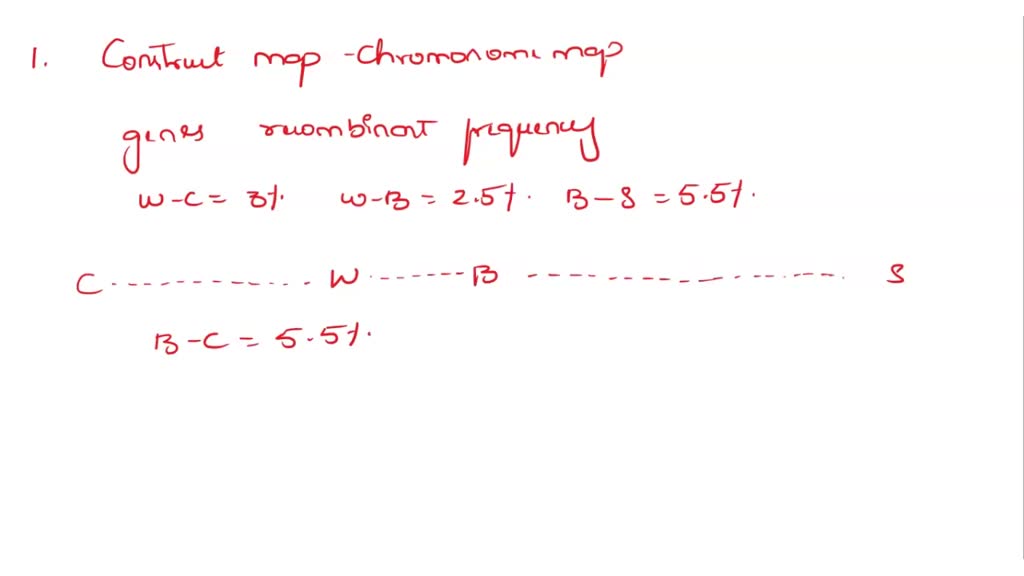 1. Construct map - chromosome map
genes recombinant frequency
W-C = 3% W-B = 2.5% B-S = 5.5%
C ............ W ....... B ---------------- S
B-C = 5.5%